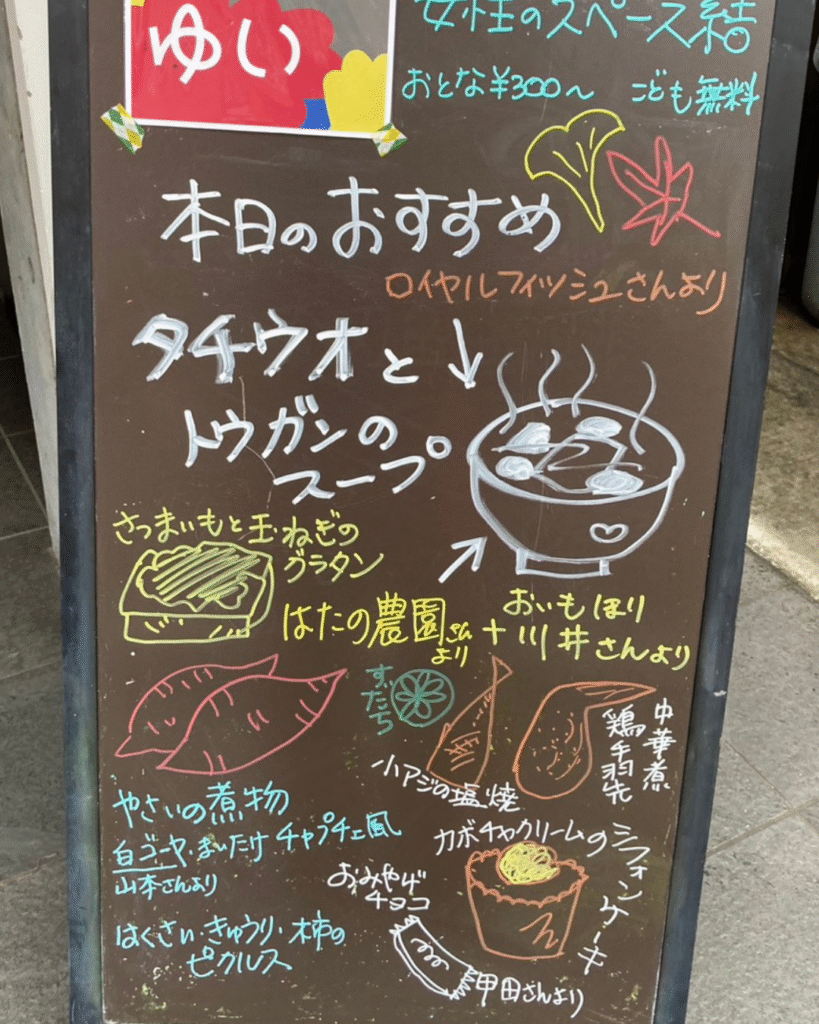 ゆい
女性のスペース結
おとな¥300〜 こども無料
本日のおすすめ
ロイヤルフィッシュさんより
タチウオと
トウガンの
スープ
さつまいもと玉ねぎの
グラタン
はたの農園さん
より
+
おいもほり
川井さんより
すだち
小アジの塩焼
鶏手羽先
中華煮
やさいの煮物
白ゴーヤ・まいたけチャプチェ風
山本さんより
はくさい・きゅうり・柿の
ピクルス
カボチャクリームの
シフォンケーキ
おみやげ
チョコ
甲田さんより